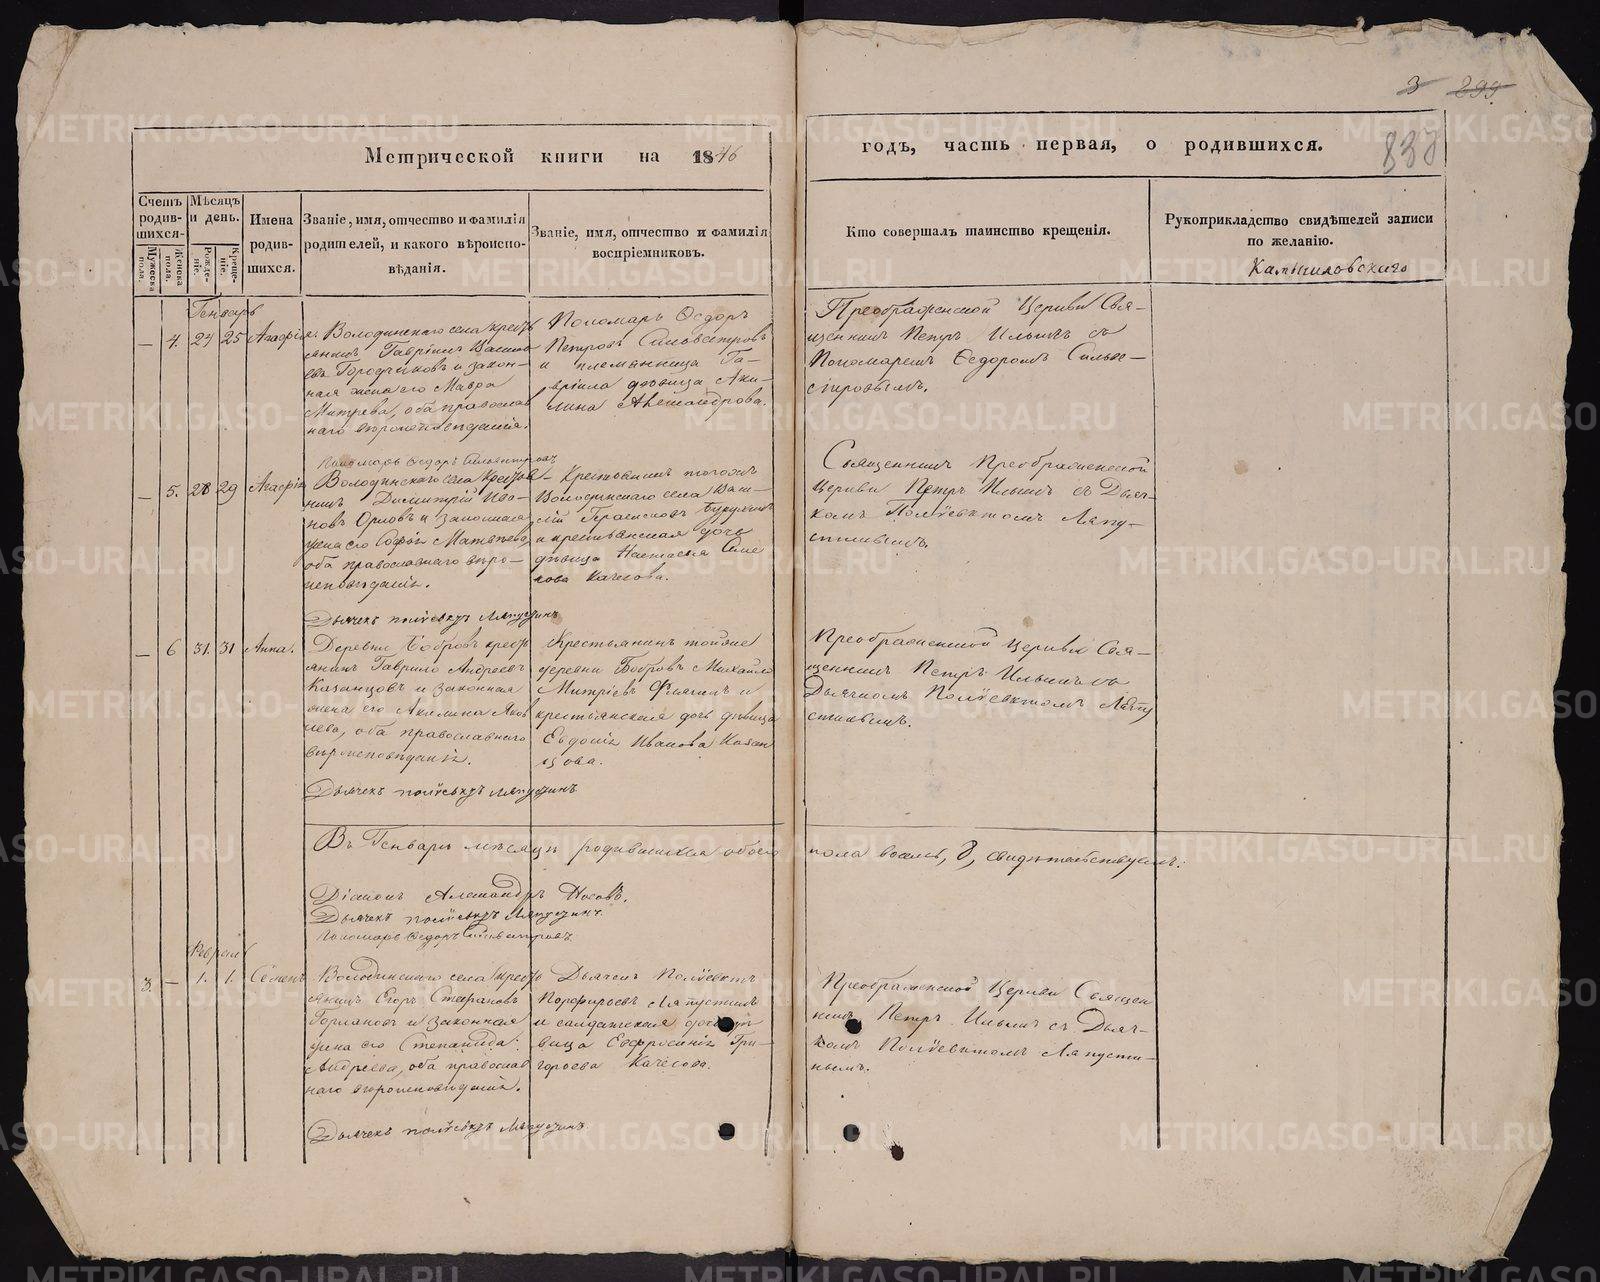 3 299
837
Метрической книги на 1846
годъ, часть первая, о родившихся.
Счетъ родив-шихся.
Мужеска пола.
Женска пола.
Мѣсяцъ и день.
Рожде-ніе.
Креще-ніе.
Имена родив-шихся.
Званіе, имя, отчество и фамилія
родителей, и какого вѣроиспо-
вѣданія.
Званіе, имя, отчество и фамилія
воспріемниковъ.
Кто совершалъ таинство крещенія.
Рукоприкладство свидѣтелей записи
по желанію.
Генварь
— 4. 24 25 Агафія.
Володинскаго села кресть
янинъ Гавріилъ
евъ Городчиковъ и закон-
ная жена его Мавра
Митрева, оба православ
наго вѣроисповѣданія.
Пономарь Ѳедоръ
Петровъ Сильвестровъ
и племянница Га-
вріила дѣвица Аки-
лина Александрова.
Преображенской Церкви Свя-
щенникъ Петръ Ильинъ съ
Пономаремъ Ѳедоромъ Сильве-
стровымъ.
Пономарь Ѳедоръ Сильвестровъ
— 5. 28 29 Агафія
Володинскаго села Кресть
нинъ Димитрій Ива-
новъ Орловъ и законная
жена его Софья Матвѣева,
оба православнаго вѣро-
исповѣданія.
Крестьянинъ тогоже
Володинскаго села Васи-
лій Герасимовъ
и крестьянская дочь
дѣвица Настасья Семе
нова Качесова.
Священникъ Преображенской
Церкви Петръ Ильинъ съ Дьяч-
комъ Поліевктомъ Лапу-
стинымъ.
Дьячекъ поліевктъ Лапустинъ
— 6 31. 31 Анна.
Деревни Бобровъ кресть
янинъ Гаврило Андреевъ
Казанцовъ и законная
жена его Акилина Яков
лева, оба православнаго
вѣроисповѣданія.
Крестьянинъ тойже
деревни Бобровъ Михайло
Митріевъ и
крестьянская дочь дѣвица
Евдокія Иванова Казан
цова.
Преображенской Церкви Свя-
щенникъ Петръ Ильинъ съ
Дьячкомъ Поліевктомъ Лапу
стинымъ.
Дьячекъ поліевктъ Лапустинъ
Въ Генварѣ мѣсяцѣ родившихся обоего пола восемь, 8, свидѣтельствуемъ:
Діаконъ Александръ Носовъ.
Дьячекъ поліевктъ Лапустинъ.
Пономарь Ѳедоръ Сильвестровъ
Февраль
3. — 1. 1. Семенъ
Володинскаго села кресть
янинъ Егоръ Стефановъ
Горлановъ и законная
жена его Степанида
Андреева, оба православ
наго вѣроисповѣданія.
Дьячекъ Поліевктъ
Порфирьевъ Лапустинъ
и солдатская дочь дѣ
вица Евфросинія Гри-
горьева Качесова.
Преображенской Церкви Священ
никъ Петръ Ильинъ съ Дьяч-
комъ Поліевктомъ Лапусти-
нымъ.
Дьячекъ поліевктъ Лапустинъ
METRIKI.GASO-URAL.RU